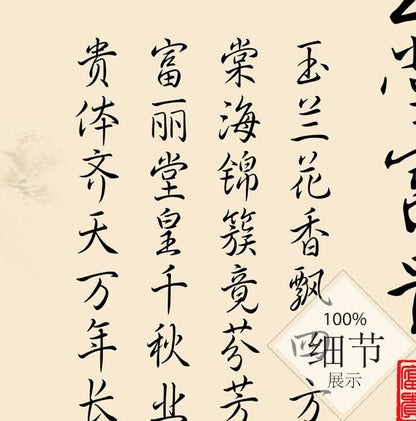 玉兰花香飘四方
棠海锦簇竟芬芳
富丽堂皇千秋业
贵体齐天万年长
100%
细节
展示
富贵